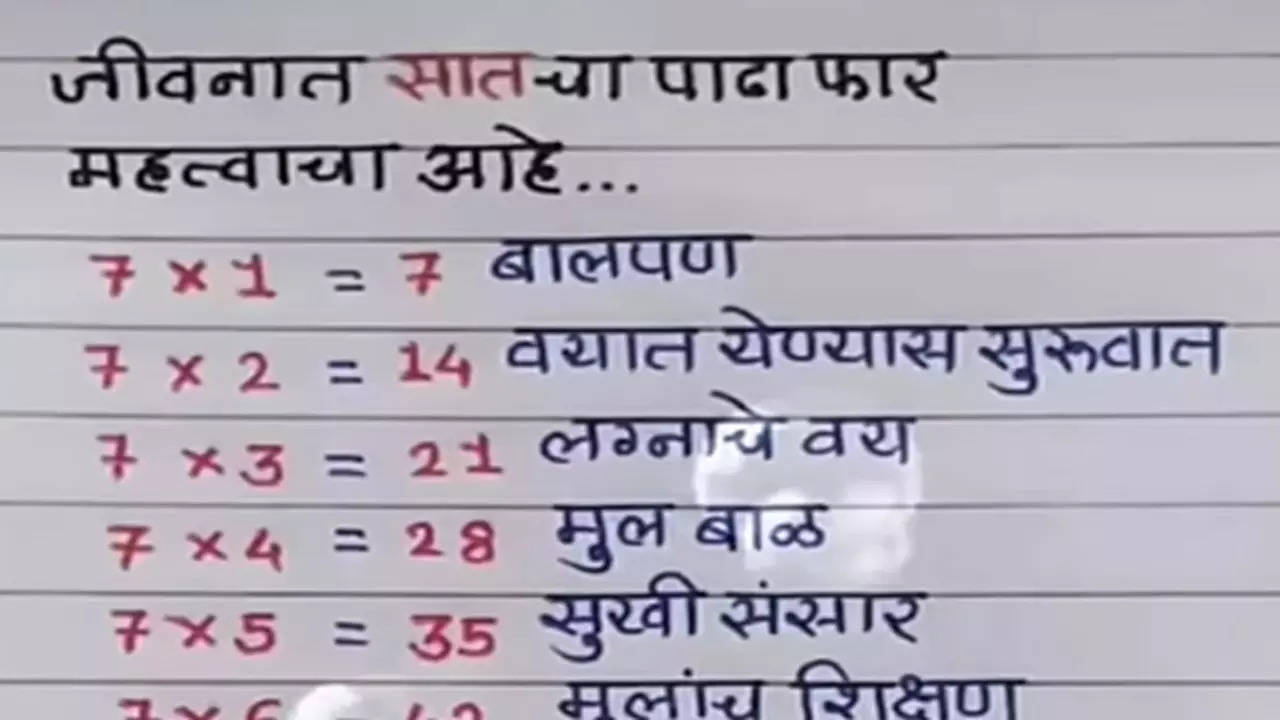 जीवनात सातचा पाढा फार
महत्वाचा आहे...
7 × 1 = 7 बालपण
7 × 2 = 14 वयात येण्यास सुरूवात
7 × 3 = 21 लग्नाचे वय
7 × 4 = 28 मुल बाळ
7 × 5 = 35 सुखी संसार
7 × 6 = 42 मुलांच शिक्षण